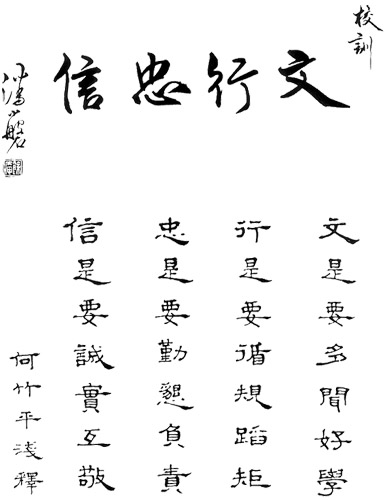 校訓
文行忠信
文是要多聞好學
行是要循規蹈矩
忠是要勤懇負責
信是要誠實互敬
何竹平淺釋